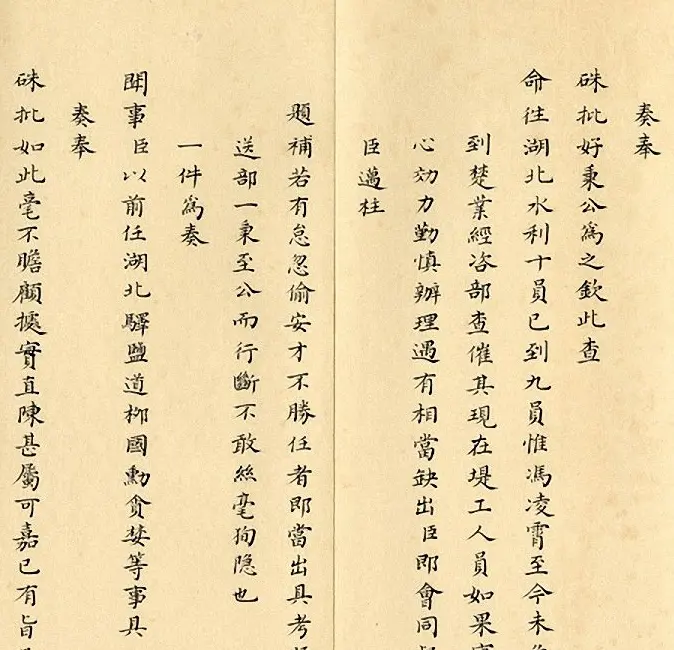 奏奉
硃批好秉公為之欽此查
命往湖北水利十員已到九員惟馮凌霄至今未
到楚業經咨部查催其現在堤工人員如果
心効力勤慎辦理遇有相當缺出臣即會同
臣邁柱
題補若有怠忽偷安才不勝任者即當出具考
送部一秉至公而行斷不敢絲毫狥隱也
一件為奏
聞事臣以前任湖北驛鹽道柳國勳貪婪等事具
奏奉
硃批如此毫不瞻顧據實直陳甚屬可嘉已有旨